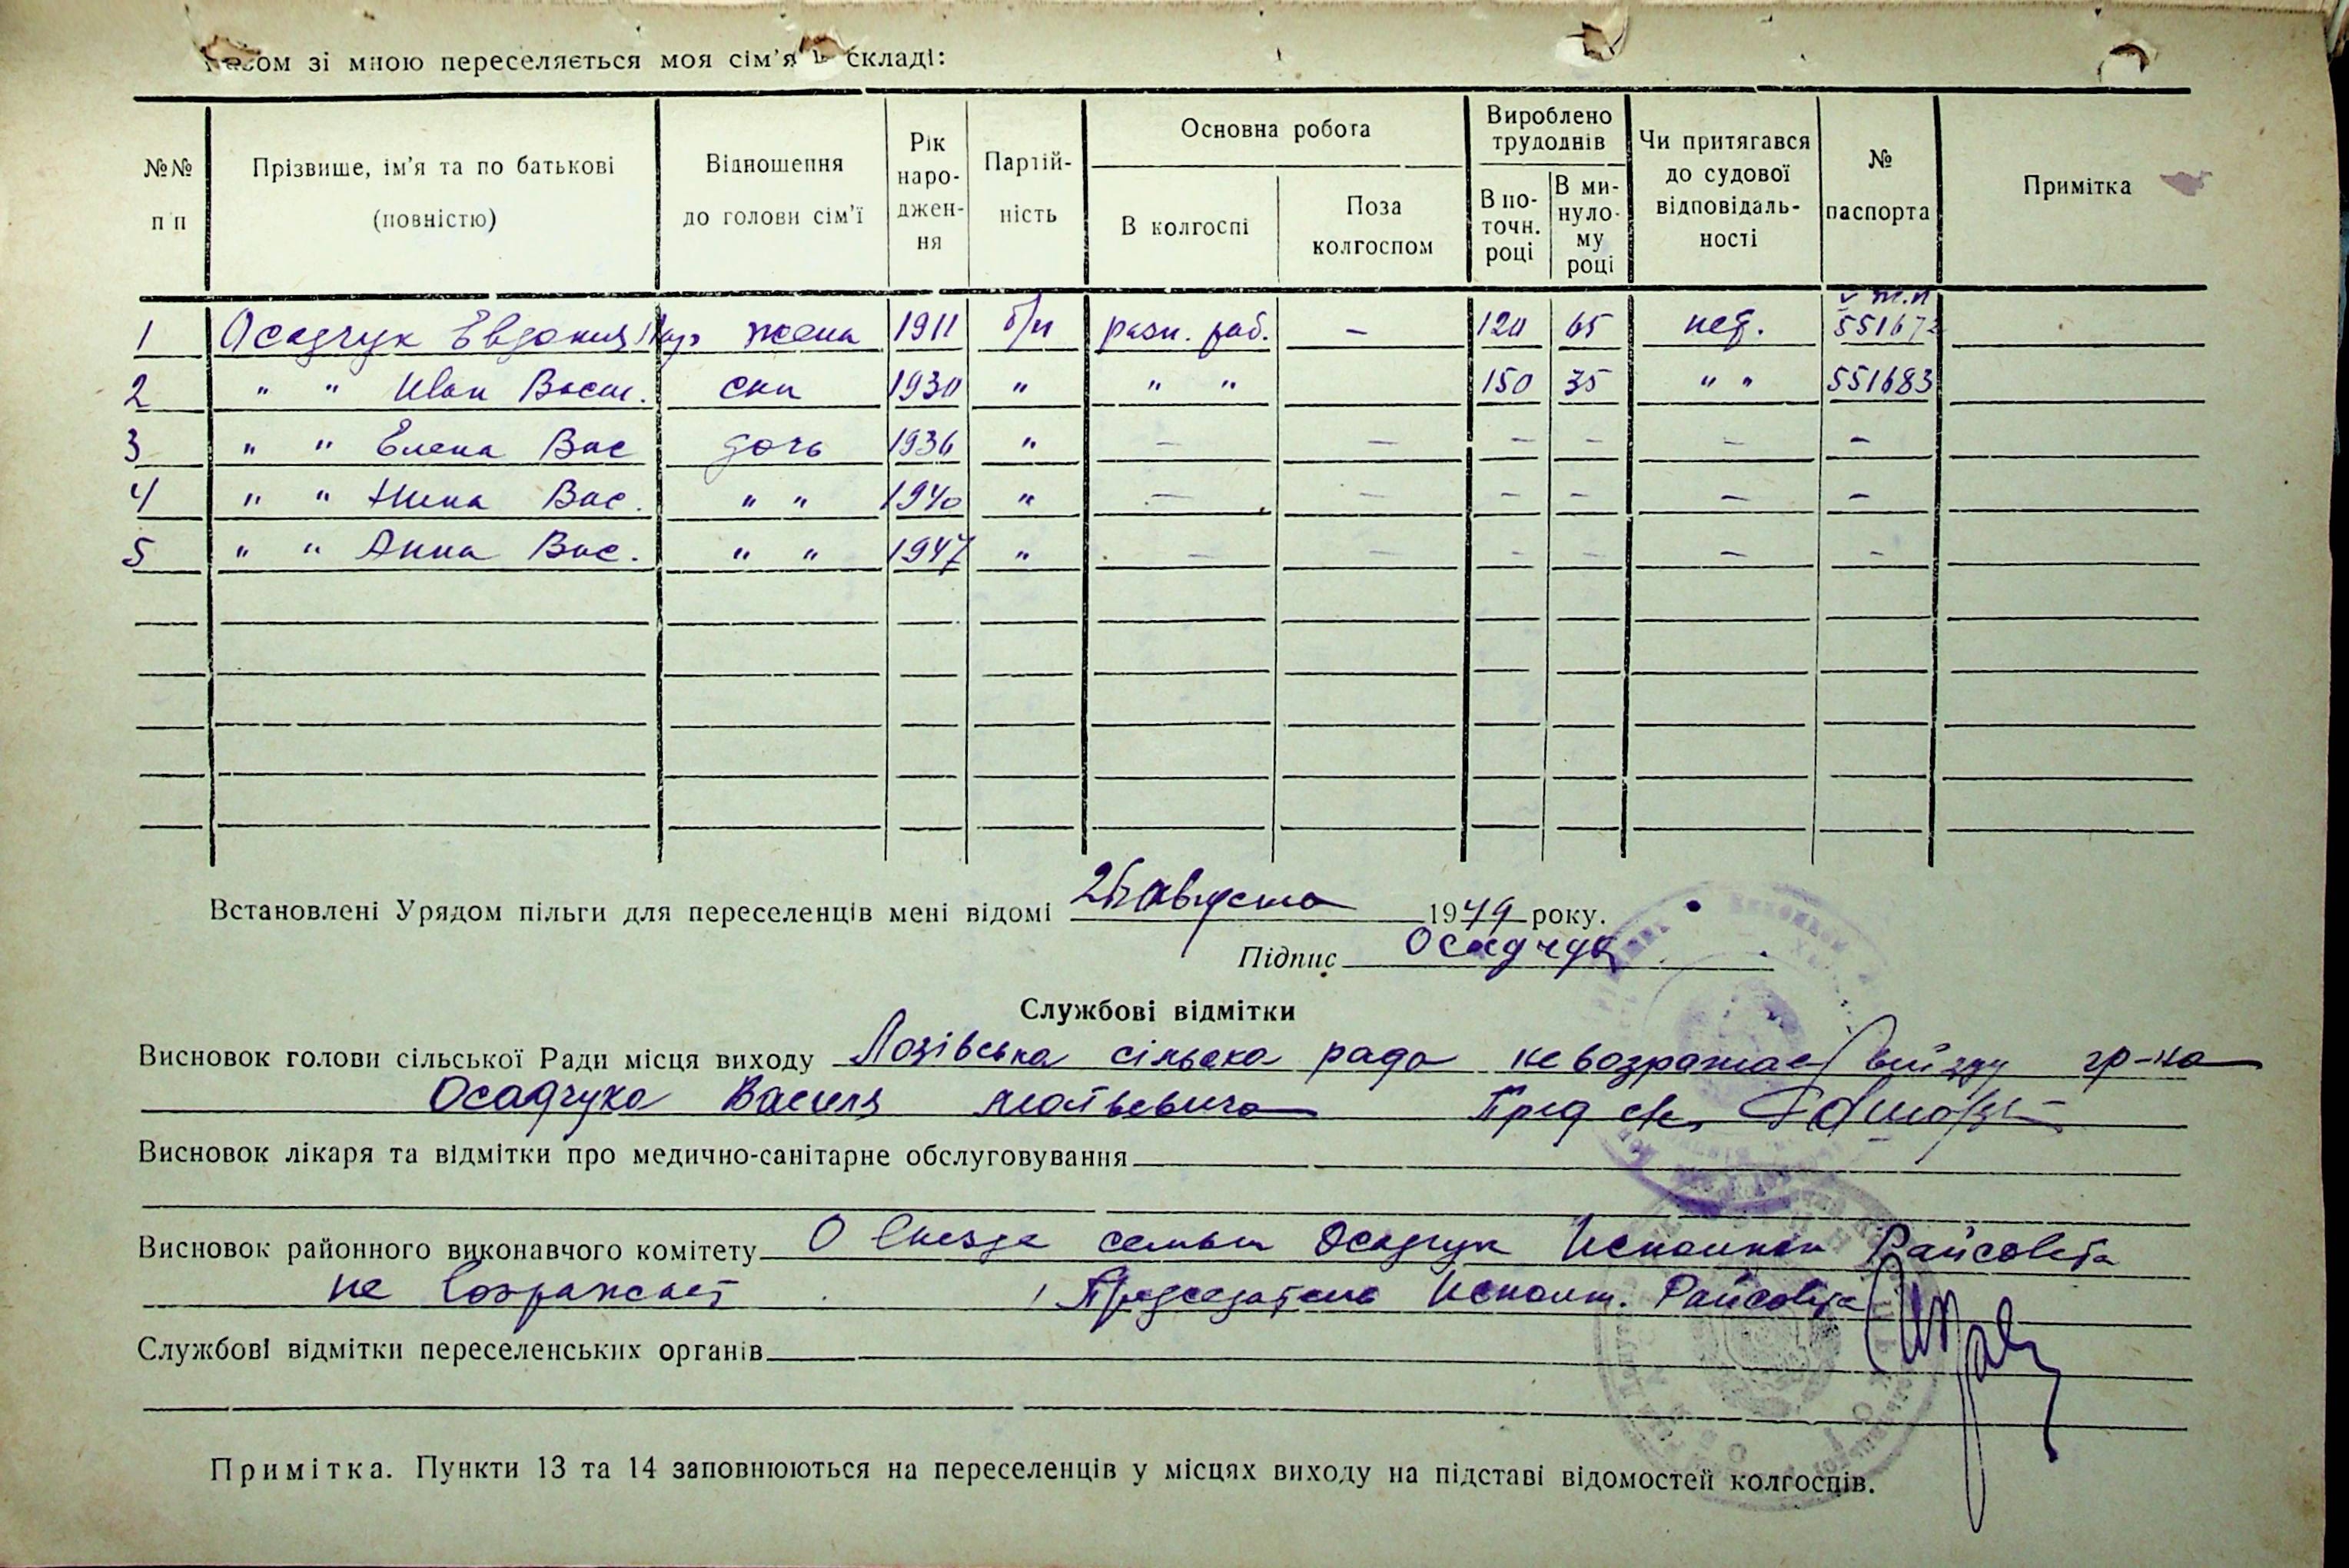 Разом зі мною переселяється моя сім'я в складі:
№№ п п | Прізвише, ім'я та по батькові (повністю) | Відношення до голови сім'ї | Рік народження | Партійність | Основна робота | Вироблено трудоднів | Чи притягався до судової відповідальності | № паспорта | Примітка
В колгоспі | Поза колгоспом | В поточн. році | В минулому році
1 Осадчук Евдокия жена 1911 б/п разн. раб. – 120 65 нет. 551672
2 " " Иван Васил. сын 1930 " " " 150 35 " " 551683
3 " " Елена Вас дочь 1936 " – – – – – –
4 " " Нина Вас. " " 1940 " – – – – – –
5 " " Анна Вас. " " 1947 " – – – – – –
Встановлені Урядом пільги для переселенців мені відомі 26 августа 1949 року.
Підпис Осадчук
Службові відмітки
Висновок голови сільської Ради місця виходу Лозівська сільска рада не возражает виїзду гр-на
Осадчука Василя Матвевича Пред с/с.
Висновок лікаря та відмітки про медично-санітарне обслуговування
Висновок районного виконавчого комітету О выезде семьи Осадчук Исполком Райсовета
не возражает Председатель Исполк. Райсовета
Службові відмітки переселенських органів
Примітка. Пункти 13 та 14 заповнюються на переселенців у місцях виходу на підставі відомостей колгоспів.